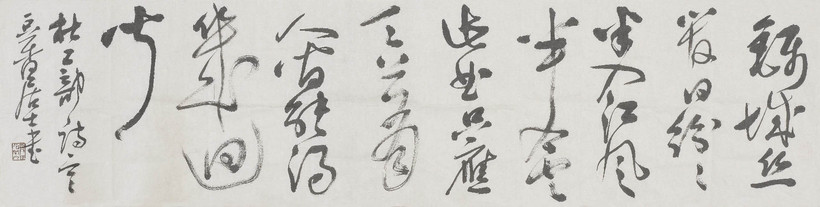 錦城丝
管日紛〻
半入江风
半入雲
此曲只應
天上有
人间能得
幾回
闻
杜工部詩
居士书